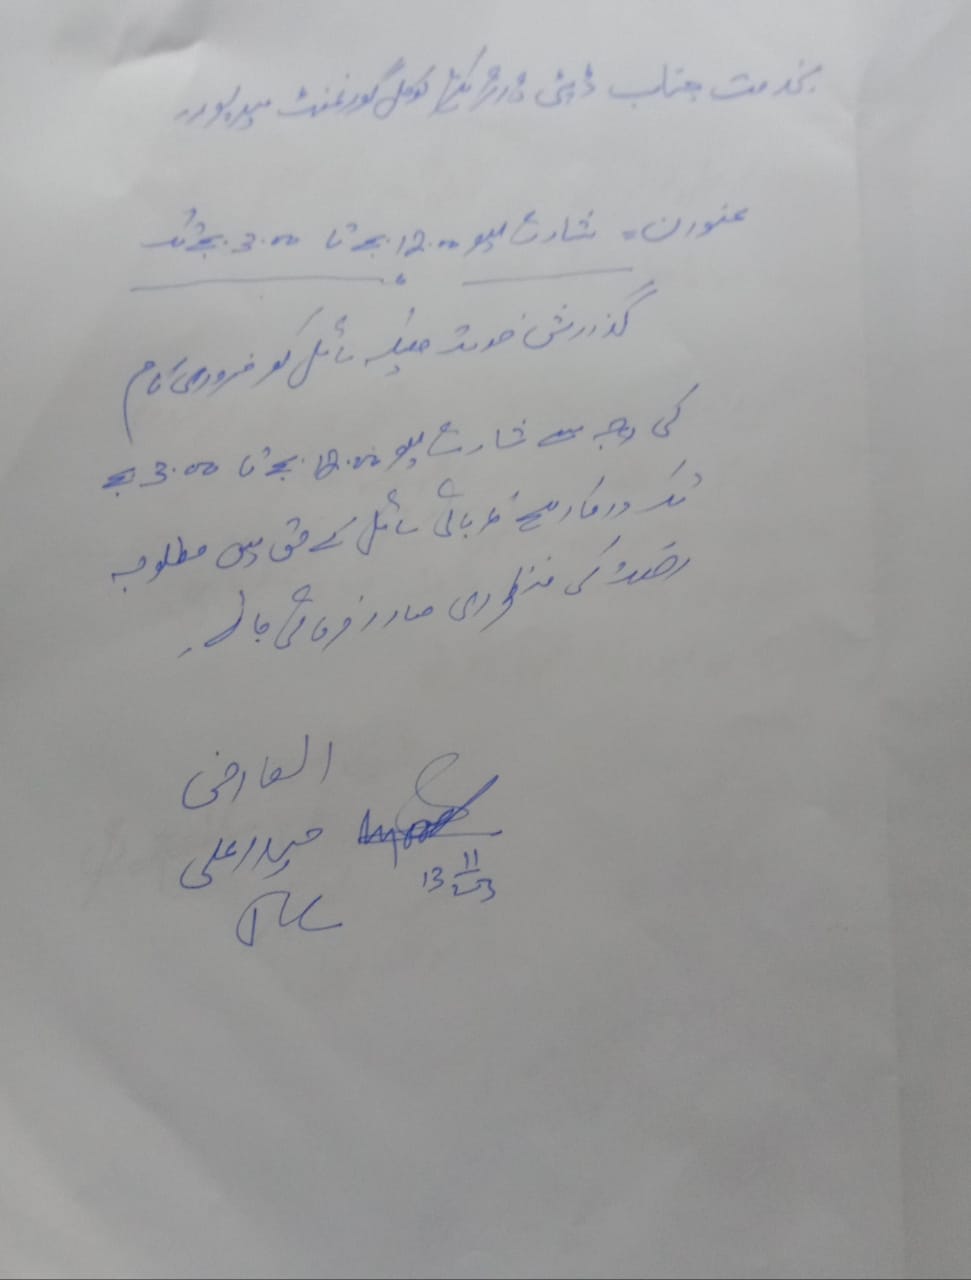 بخدمت جناب ڈپٹی ڈائریکٹر لوکل گورنمنٹ میرپور۔
عنوان = شارٹ لیو 12.00 بجے تا 3.00 بجے تک
گذارش خدمت ہیکہ سائل کو ضروری کام
کی وجہ سے شارٹ لیو 12.00 بجے تا 3.00 بجے
تک درکار ہے مہربانی سائل کے حق میں مطلوبہ
رخصت کی منظوری صادر فرمائی جائے۔
العارض
حیدر علی
13 11